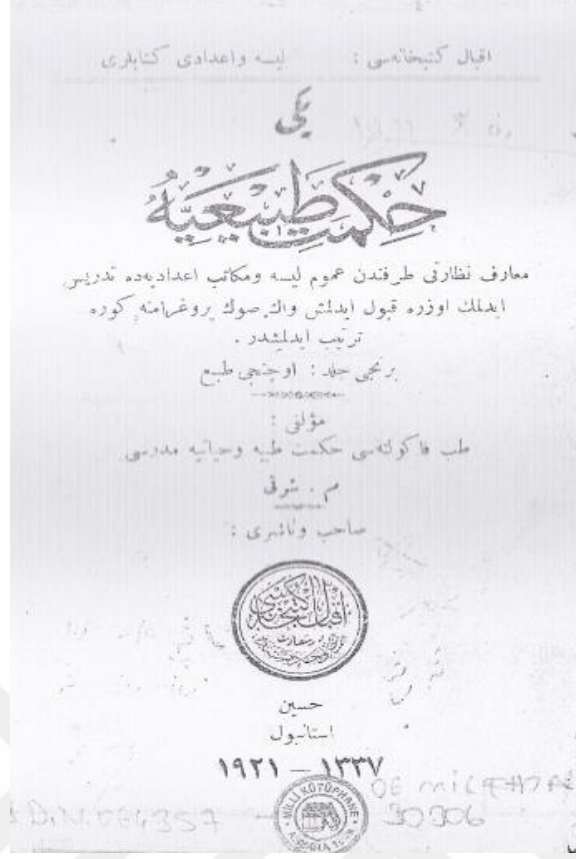 اقبال كتبخانه‌سی : ليسه واعدادی كتابلری
يكی
حكمت طبيعيه
معارف نظارتی طرفندن عموم ليسه ومكاتب اعداديه‌ده تدريس
ايدلمك اوزره قبول ايدلمش واك صوك پروغرامنه كوره
ترتيب ايدلمشدر .
برنجی جلد : اوچنجی طبع
مؤلفی :
طب فاكولته‌سی حكمت طبيه وحياتيه مدرسی
م . شوقی
صاحب وناشری :
حسين
استانبول
١٣٣٧ — ١٩٢١
MİLLİ KÜTÜPHANE
ANKARA
30306